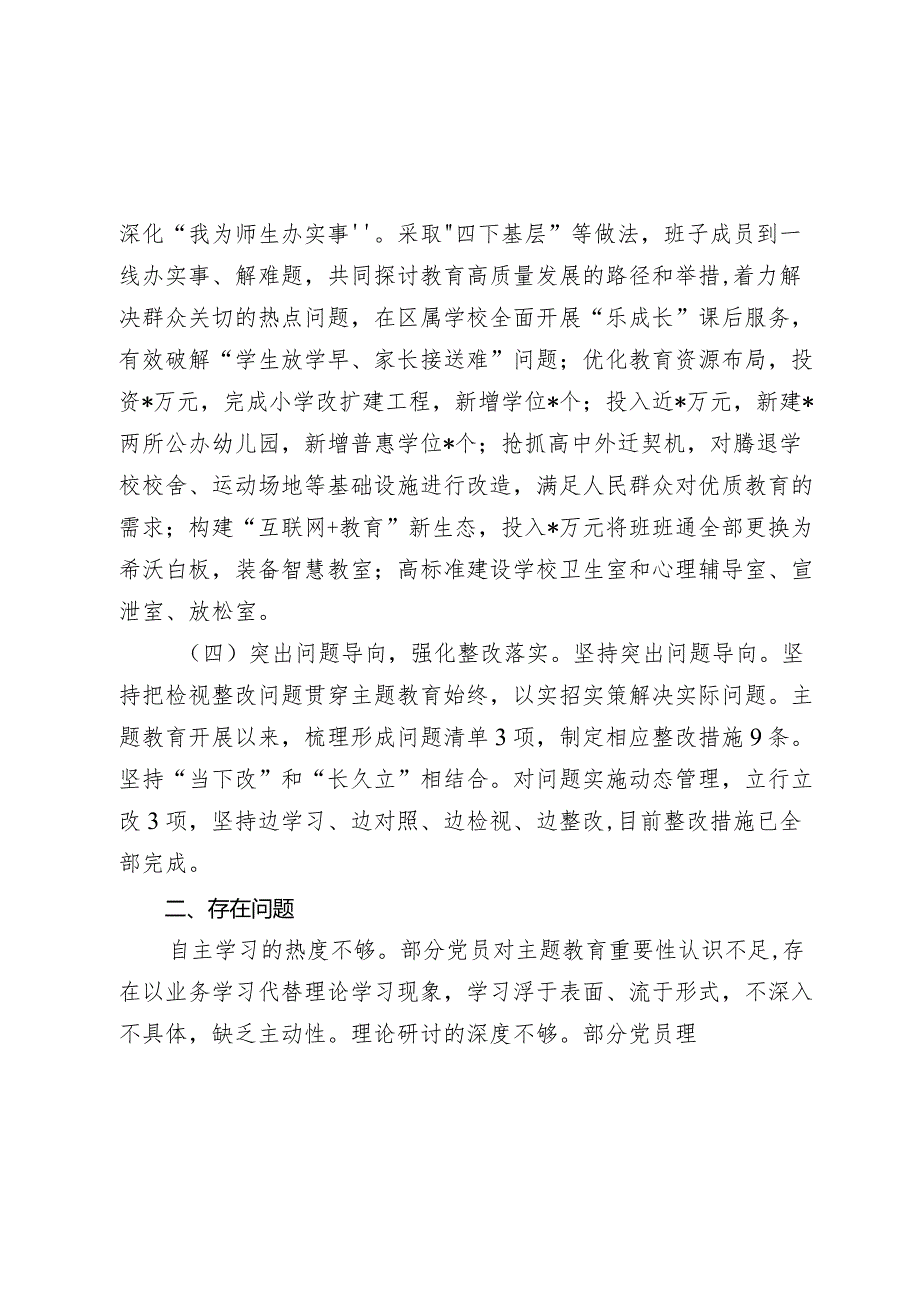 深化“我为师生办实事''。采取"四下基层”等做法，班子成员到一
线办实事、解难题，共同探讨教育高质量发展的路径和举措,着力解
决群众关切的热点问题，在区属学校全面开展“乐成长”课后服务，
有效破解“学生放学早、家长接送难”问题；优化教育资源布局，投
资*万元，完成小学改扩建工程，新增学位*个；投入近*万元，新建*
两所公办幼儿园，新增普惠学位*个；抢抓高中外迁契机，对腾退学
校校舍、运动场地等基础设施进行改造，满足人民群众对优质教育的
需求；构建“互联网+教育”新生态，投入*万元将班班通全部更换为
希沃白板，装备智慧教室；高标准建设学校卫生室和心理辅导室、宣
泄室、放松室。
（四）突出问题导向，强化整改落实。坚持突出问题导向。坚
持把检视整改问题贯穿主题教育始终，以实招实策解决实际问题。主
题教育开展以来，梳理形成问题清单3项，制定相应整改措施9条。
坚持“当下改”和“长久立”相结合。对问题实施动态管理，立行立
改3项，坚持边学习、边对照、边检视、边整改,目前整改措施已全
部完成。
二、存在问题
自主学习的热度不够。部分党员对主题教育重要性认识不足,存
在以业务学习代替理论学习现象，学习浮于表面、流于形式，不深入
不具体，缺乏主动性。理论研讨的深度不够。部分党员理